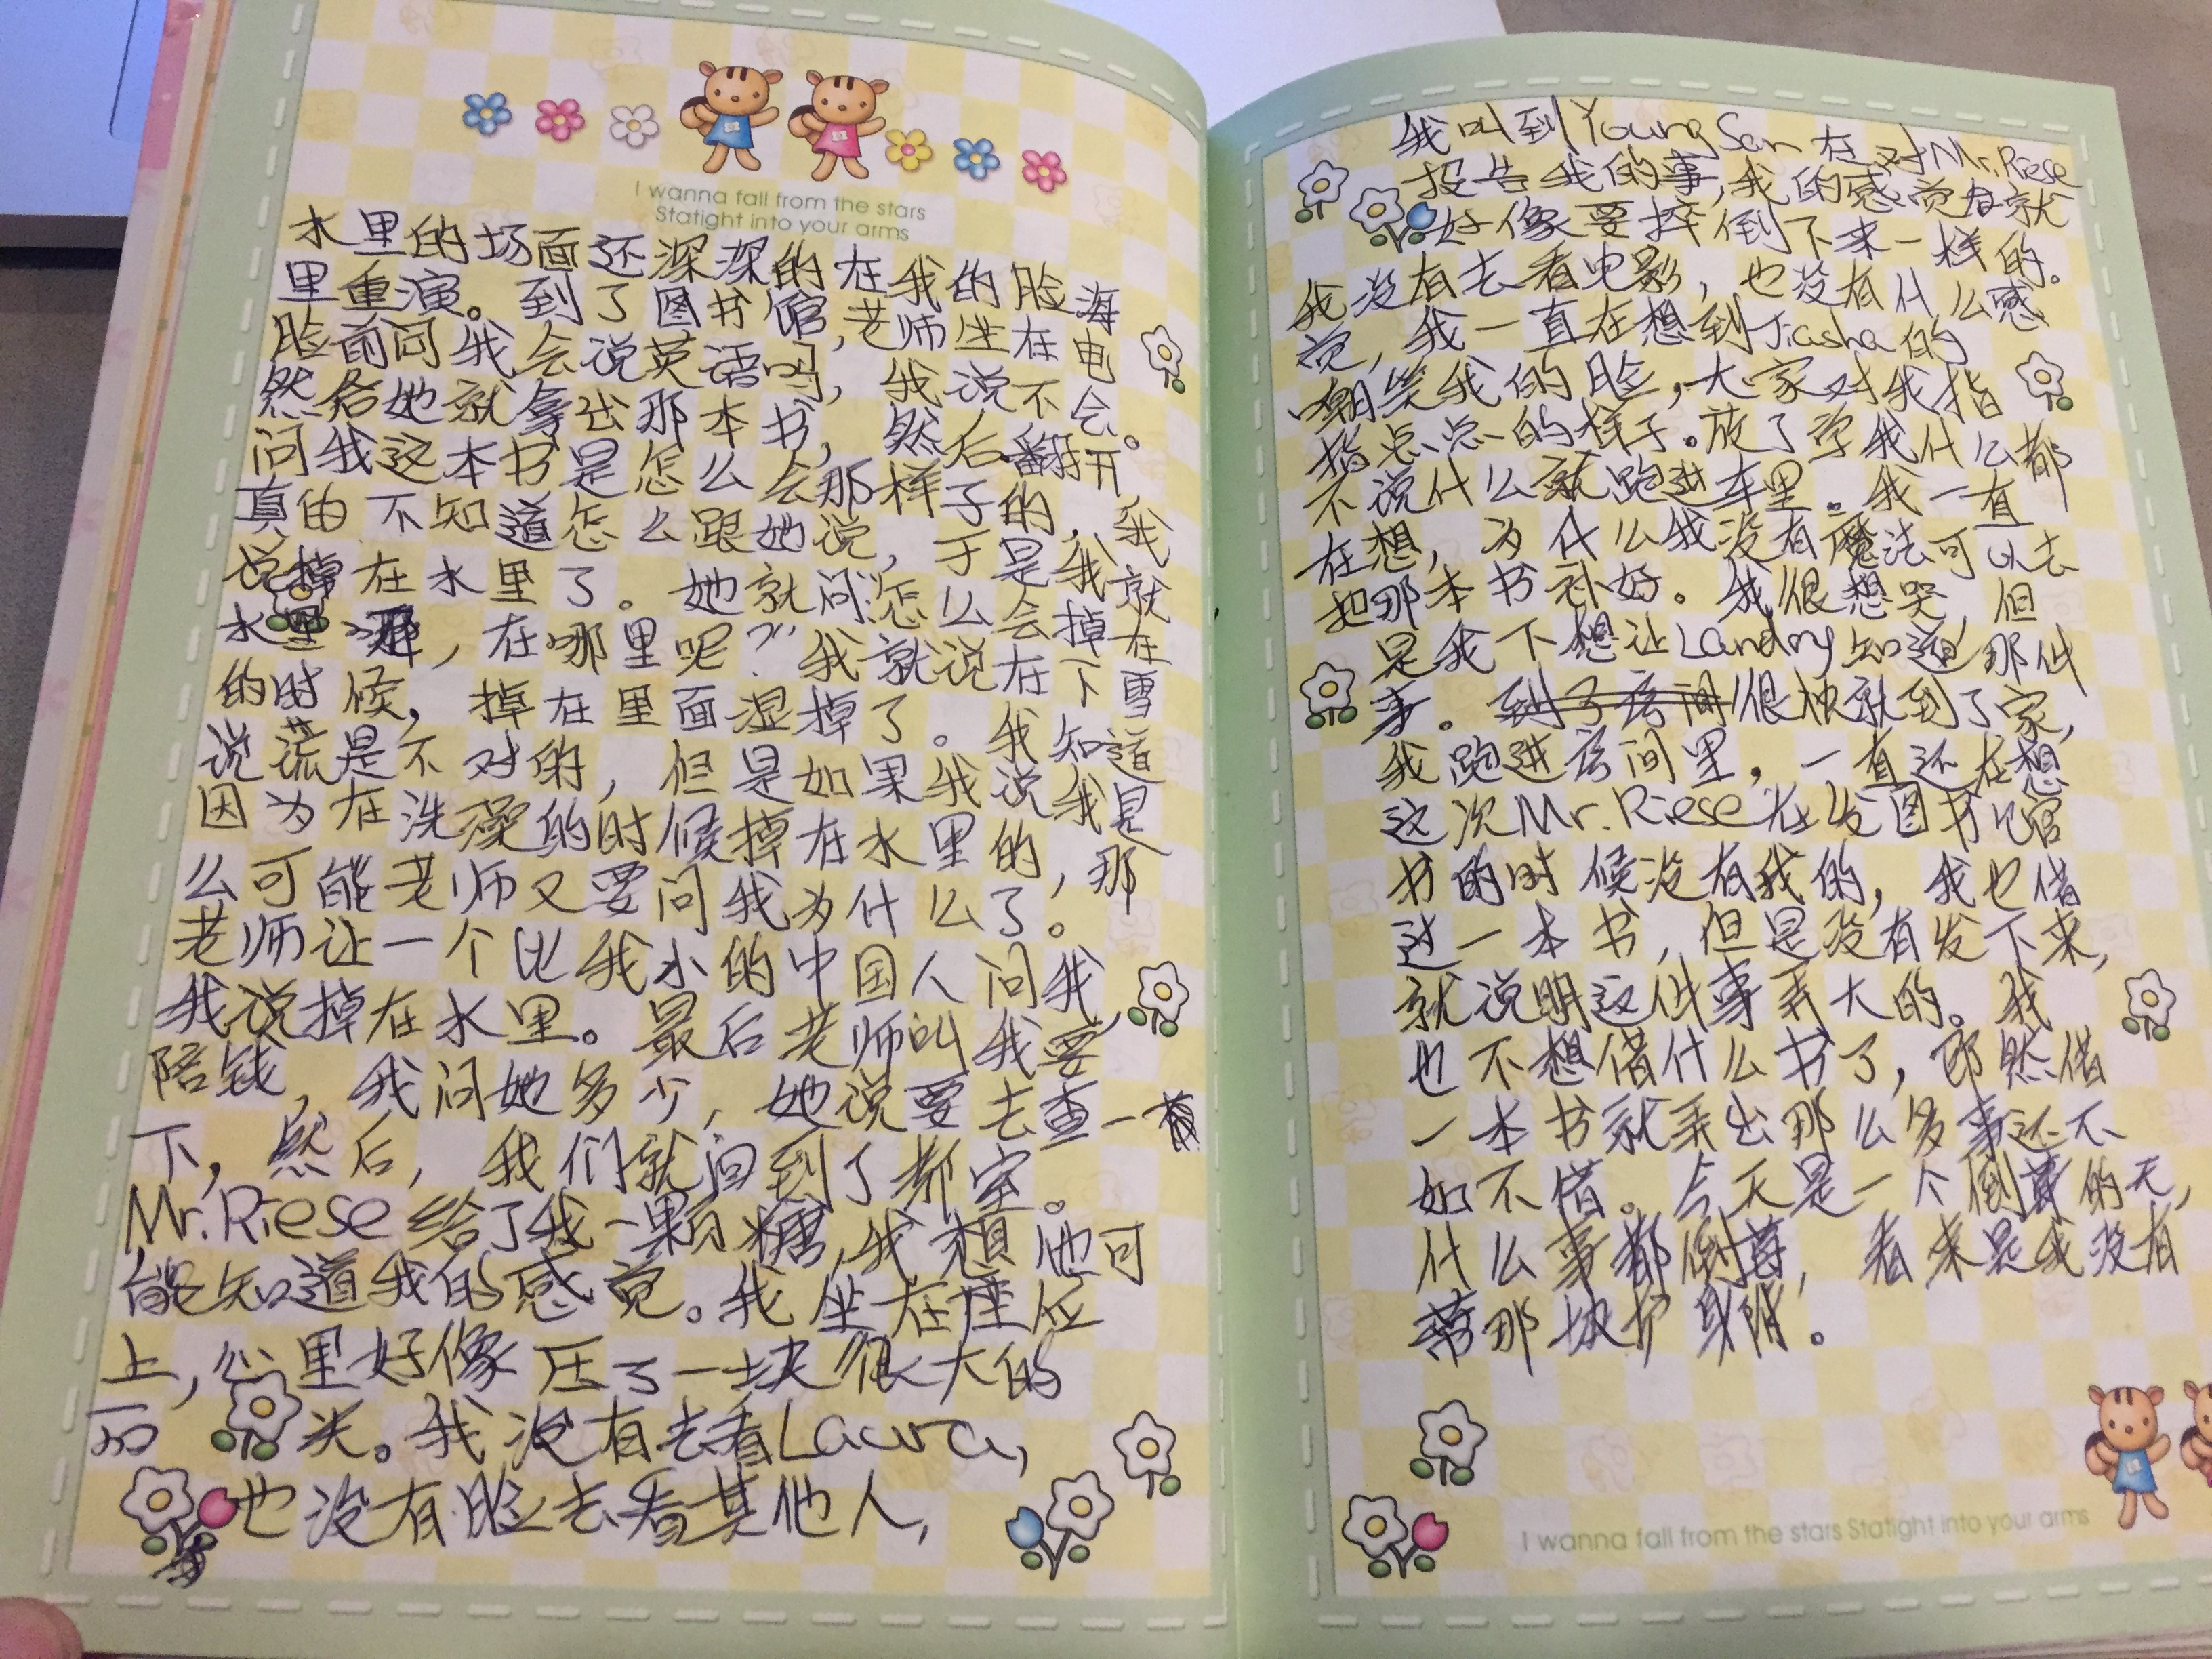 I wanna fall from the stars
Statight into your arms
水里的场面还深深的在我的脸海
里重演。到了图书馆,老师坐在电
脸前问我会说英语吗,我说不会。
然后她就拿出那本书,然后翻开,
问我这本书是怎么会那样子的,我
真的不知道怎么跟她说,于是我就
说掉在水里了。她就问:怎么会掉在
水里,在哪里呢?"我就说在下雪
的时候,掉在里面湿掉了。我知道
说谎是不对的,但是如果我说我是
因为在洗澡的时候掉在水里的,那
么可能老师又要问我为什么了。
老师让一个比我小的中国人问我,
我说掉在水里。最后老师叫我要
陪钱,我问她多少,她说要去查一
下,然后,我们就回到了教室。
Mr.Riese给了我一颗糖,我想他可
能知道我的感觉。我坐在座位
上,心里好像压了一块很大的
石头。我没有去看Laura,
也没有脸去看其他人,
我叫到Young Sen在对Mr.Riese
投告我的事,我的感觉就
好像要摔倒下来一样的。
我没有去看电影,也没有什么感
觉,我一直在想到Jiasha的
嘲笑我的脸,大家对我指
指点点的样子。放了学我什么都
不说什么就跑进车里。我一直
在想,为什么我没有魔法可以去
把那本书补好。我很想哭,但
是我不想让Landry知道那件
事。到了房间很快就到了家,
我跑进房间里,一直还在想
这次Mr.Riese在发图书馆
书的时候没有我的,我也借
过一本书,但是没有发下来,
就说明这件事弄大的。我
也不想借什么书了,即然借
一本书就弄出那么多事还不
如不借。今天是一个倒霉的天,
什么事都倒霉,看来是我没有
带那块护身附。
I wanna fall from the stars Statight into your arms